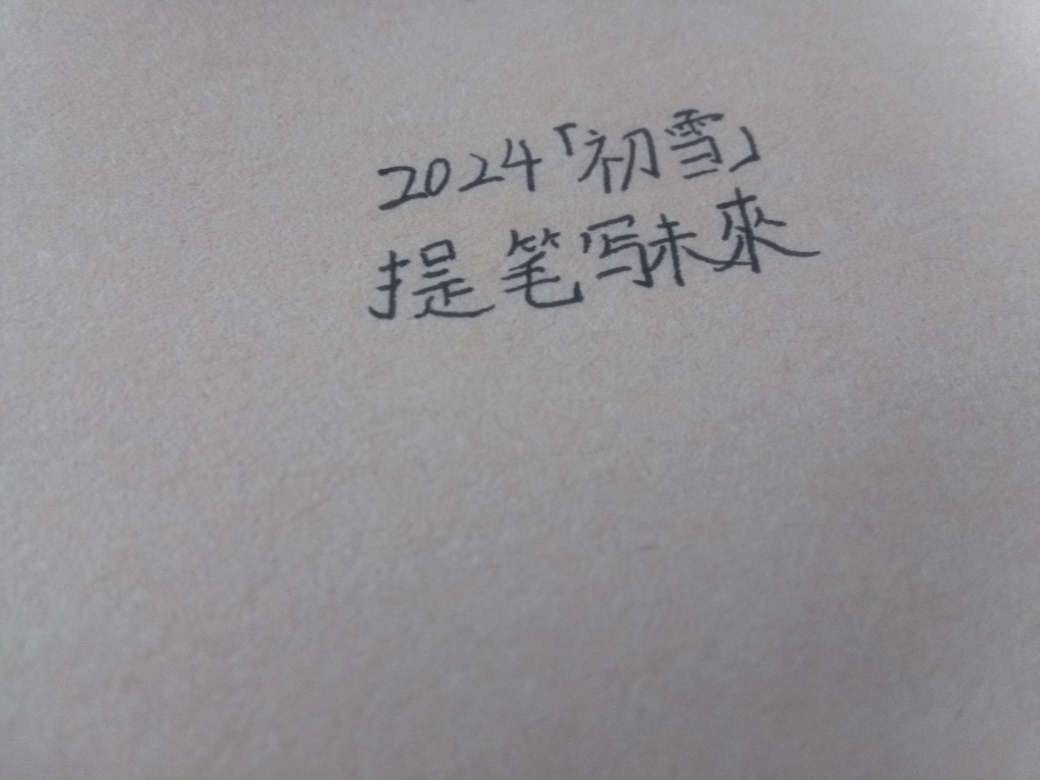 2024「初雪」
提笔写未來